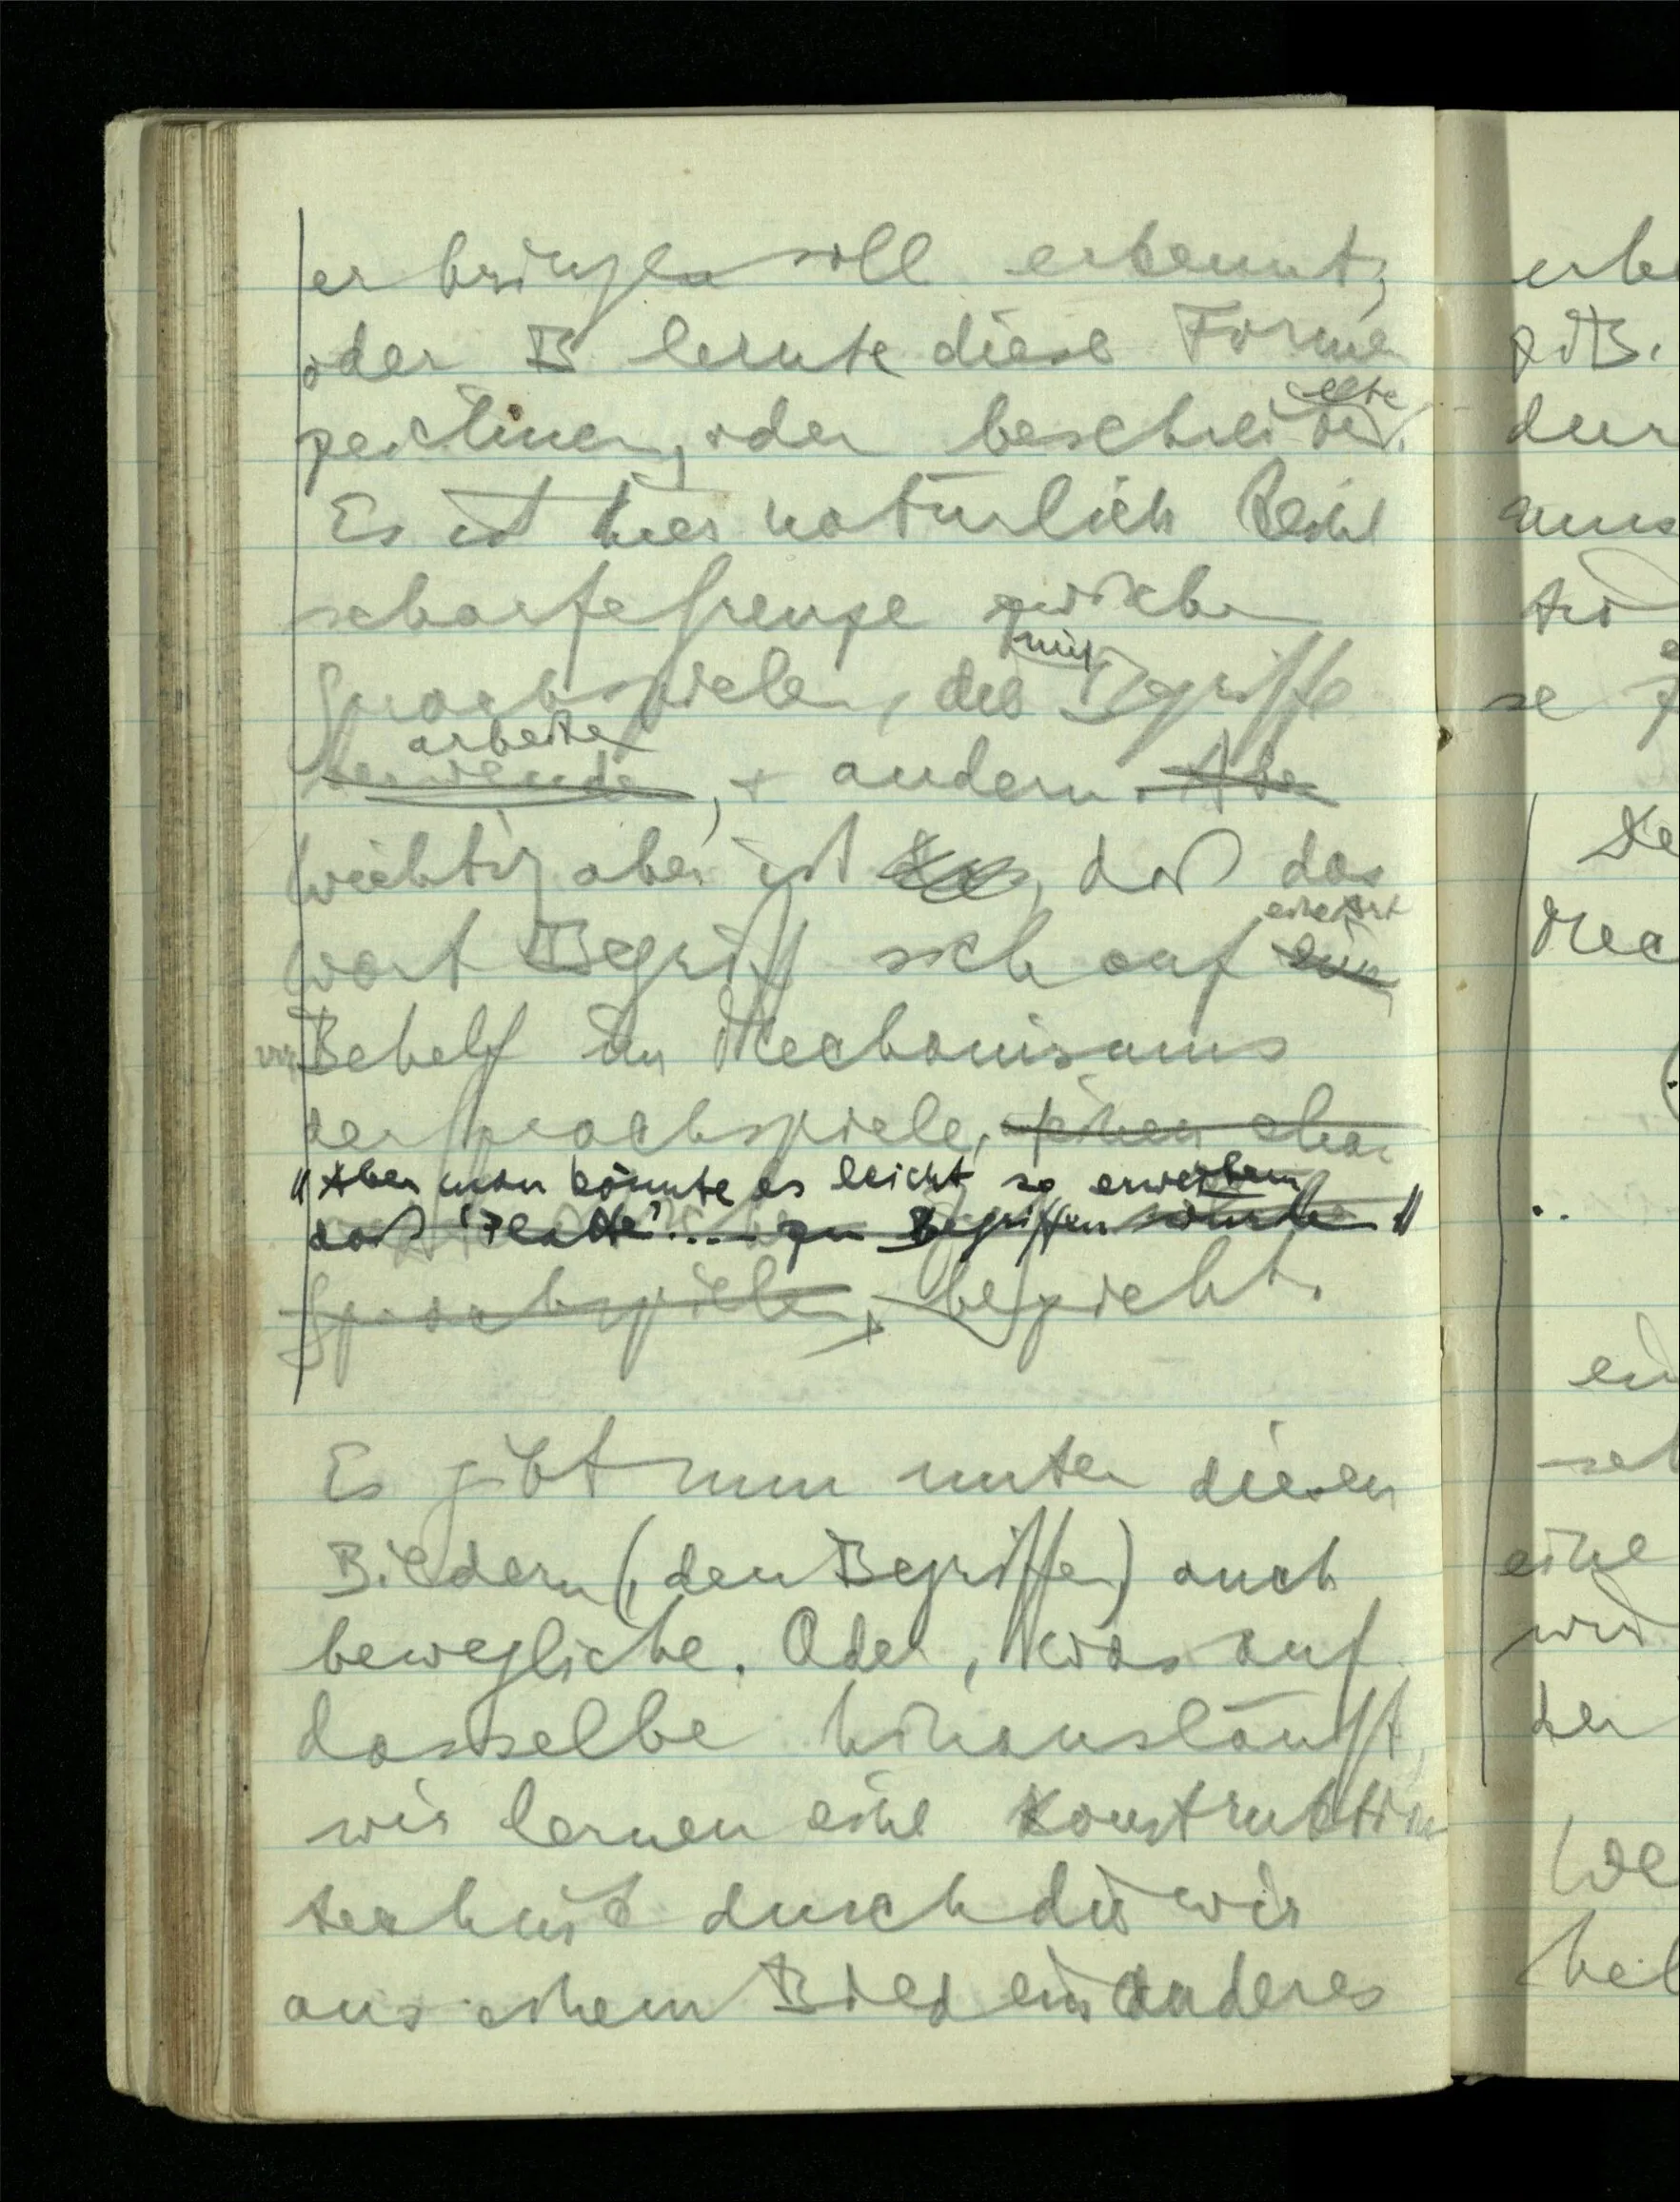 er bringen soll erkennt;
oder B lernte diese Forme
zeichnen, oder beschreiben.
Es ist hier natürlich keine
scharfe Grenze zwischen
mit
Sprachspielen, die Begriffe
arbeiten
verwenden, + andern. Aber
Wichtig aber ist, daß das
eine Art
Wort Begriff sich auf ein
Behelf im Mechanismus
der Sprachspiele,
"Aber man könnte es leicht so erweitern
daß 'Platte'.... zu Begriffen würden"
Sprachspielen, bezieht.
Es gibt nun unter diesen
Bildern (, den Begriffen) auch
bewegliche. Oder, was auf
dasselbe hinausläuft,
wir lernen eine Konstruktions
technik durch die wir
aus einem Bild ein anderes
erke
z.B.
dur
aus
se
Me
eine
wird
der
We